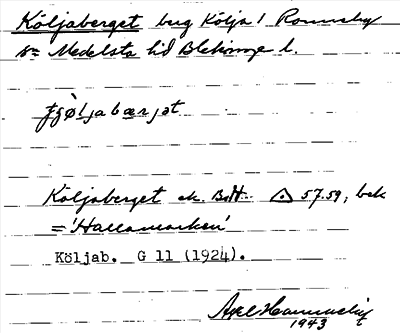 Köljaberget berg Kölja 1 Ronneby
sn Medelsta hd Blekinge l.
Köljaberget ek. Bl 57.59, bek
= 'Hallamarken'
Köljab. G 11 (1924).
1943